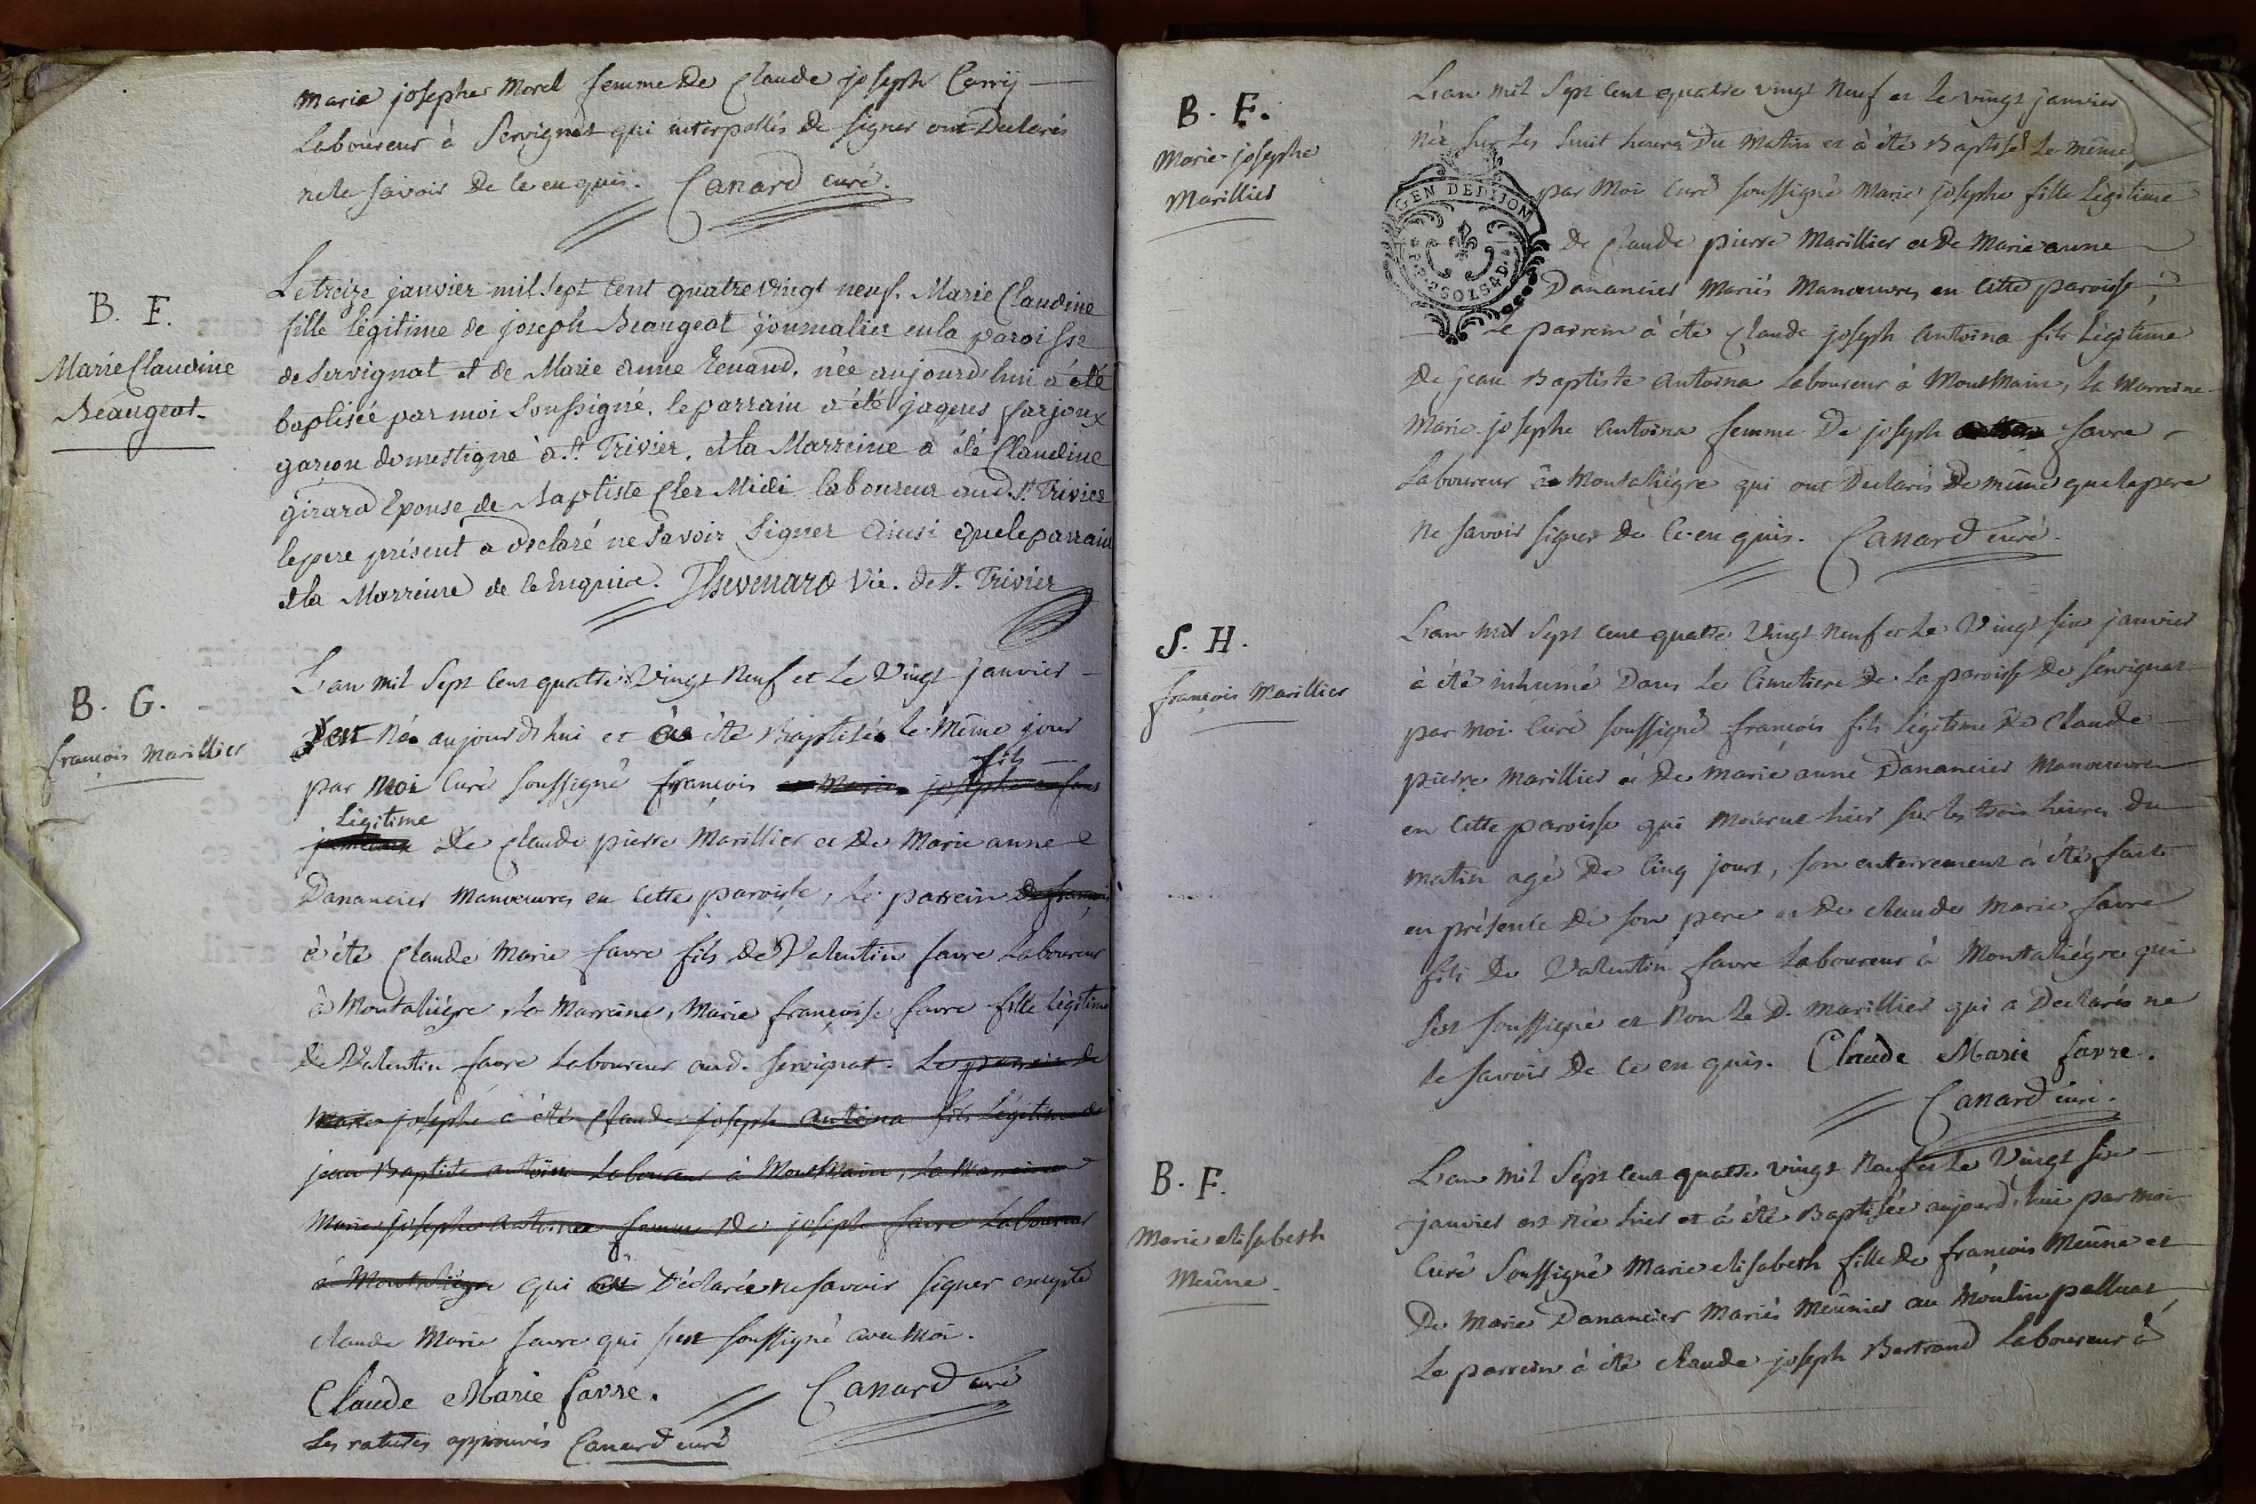 Marie josephe Morel femme De Claude joseph Carrij
Laboureur à Servignat qui interpellés de signer ont Declarés
ne le savoir De ce enquis. Canard curé.
B. F.
Marie Claudine
Beaugeot
Le treize janvier mil sept cent quatre vingt neuf. Marie Claudine
fille légitime de joseph Beaugeot journalier en la paroisse
de Servignat et de Marie Anne Renaud, née aujourd'hui a été
baptisée par moi soussigné. le parrain a été jaques farjoux
garçon domestique à St. Trivier, et la Marreine a été Claudine
girard Epouse de Baptiste Cler Midi laboureur aud. St. Trivier
le pere présent a declaré ne savoir signer Ainsi que le parrain
et la Marreine de ce enquise. Thevenard Vic. de St. Trivier
B. G.
françois Marillier
L'an mil Sept Cent quatre Vingt Neuf et Le Vingt janvier
est Né aujourd'hui et a été Baptisé le Même jour
par Moi Curé soussigné françois et Marie josephe enfans
fils
Légitime
jumeaux de Claude pierre Marillier et De Marie anne
Danancier Manœuvres en Cette paroisse, Le parrein de françois
à été Claude Marie favre fils de Valentin favre Laboureur
à Montaliégre, la Marreine, Marie françoise favre fille légitime
de Valentin favre Laboureur aud. Servignat. Le parrein de
Marie josephe à été Claude joseph Antoina fils Légitime de
jean Baptiste Antoina Laboureur à Montmain, La Marreine
Marie josephe Antoinaz femme De joseph favre Laboureur
à Montaliégre qui ont Déclarée ne savoir signer excepté
claude Marie favre qui s'est soussigné avec Moi.
Claude Marie favre. Canard curé
Les ratures approuvées Canard curé
B. F.
Marie josephe
Marillier
L'an mil Sept Cent quatre vingt Neuf et le vingt janvier
née sur Les huit heures Du Matin et à été Baptisé Le même
par Moi Curé soussigné Marie josephe fille Légitime
de Claude pierre Marillier et De Marie anne
Danancier Mariés Manœuvres en Cette paroisse,
Le parrein à été Claude joseph Antoina fils Légitime
De jean Baptiste Antoina Laboureur à Montmain, la Marreine
Marie josephe Antoina femme De joseph favre
Laboureur à Montaliégre qui ont Declarés De même que le pere
Ne savoir signer de Ce enquis. Canard curé.
GEN DE DIJON
2 SOLS 4 D.
S. H.
françois Marillier
L'an mil Sept Cent quatre Vingt Neuf et Le Vingt six janvier
à été inhumé Dans Le Cimetiere De La paroisse De Servignat
par moi Curé soussigné françois fils Légitime De Claude
pierre Marillier et De Marie anne Danancier Manœuvres
en Cette paroisse qui Mourut hier sur les trois heures du
matin agé De Cinq jours, son enterrement à été fait
en présence De son pere et De claude Marie favre
fils De Valentin favre Laboureur à Montaliégre qui
s'est soussigné et Non Le D. Marillier qui a Declarés ne
le savoir De ce enquis. Claude Marie favre.
Canard curé.
B. F.
Marie elisabeth
Meûne
L'an mil Sept Cent quatre vingt Neuf et Le Vingt six
janvier est née hier et à été Baptisée aujourd'hui par moi
Curé Soussigné Marie elisabeth fille De françois Meûne et
De Marie Danancier Mariés Meûnier au Moulin palluat
Le parrein à été claude joseph Bertrand Laboureur à